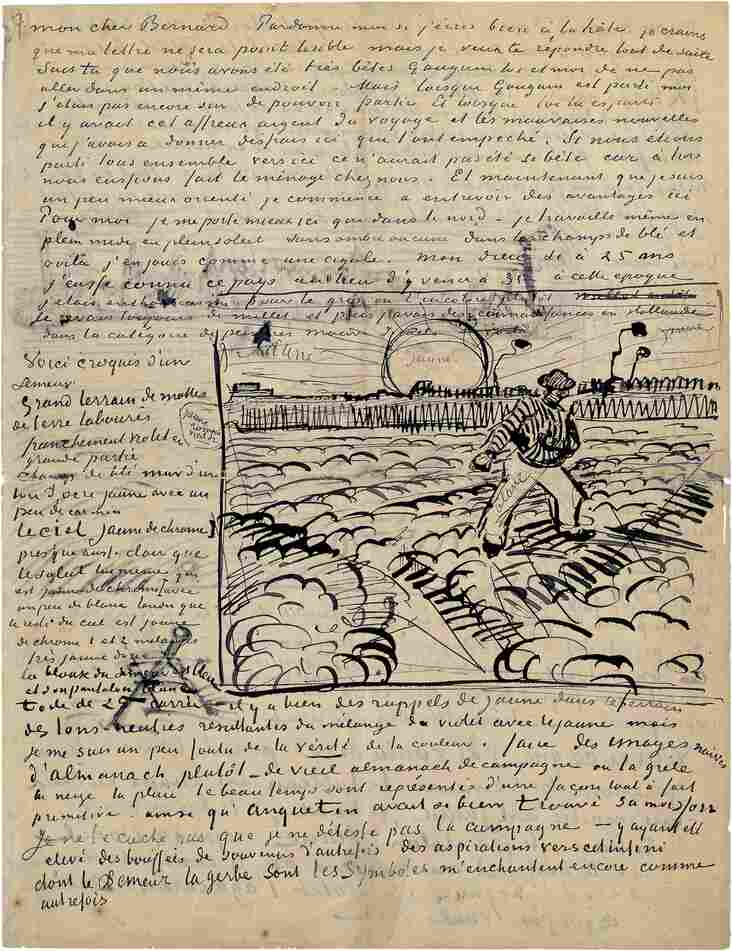 mon cher Bernard. Pardonne moi si j'écris bien à la hâte je crains
que ma lettre ne sera point lisible mais je veux te répondre tout de suite
Sais tu que nous avons été très bêtes Gauguin toi et moi de ne pas
aller dans un même endroit. Mais lorsque Gauguin est parti moi
j'étais pas encore sûr de pouvoir partir Et lorsque toi tu es parti
il y avait cet affreux argent du voyage et les mauvaises nouvelles
que j'avais à donner des frais ici qui l'ont empeché. Si nous étions
parti tous ensemble vers ici ce n'aurait pas été si bête car à trois
nous eussions fait le ménage chez nous. Et maintenant que je suis
un peu mieux orienté je commence à entrevoir des avantages ici
Pour moi je me porte mieux ici que dans le nord - je travaille même en
plein midi en plein soleil sans ombre aucune dans les champs de blé et
voilà j'en jouis comme une cigale. mon dieu si à 25 ans
j'eusse connu ce pays au lieu d'y venir à 35 à cette époque
j'étais enthousiasmé pour le gris ou l'incolore plutôt
je rêvais toujours de millet et puis j'avais des connaissances en Hollande
dans la catégorie de peintres mauve
Voici croquis d'un
semeur
Grand terrain de mottes
de terre labourés
franchement violet en
grande partie
champ de blé mûr d'un
ton d'ocre jaune avec un
peu de carmin
Le ciel jaune de chrome 1
presque aussi clair que
le soleil lui même qui
est jaune de chrome 1 avec
un peu de blanc tandis que
le reste du ciel est jaune
de chrome 1 et 2 mélangés
très jaune donc
la blouse du semeur est bleue
et son pantalon blanc
jaune
jaune
jaune
blanc
toile de 25 carrée il y a bien des rappels de jaune dans le terrain
des tons neutres résultantes du mélange du violet avec le jaune mais
je me suis un peu foutu de la vérité de la couleur. faire des images naïves
d'almanach plutôt - de vieil almanach de campagne où la grêle
la neige la pluie le beau temps sont représentés d'une façon tout à fait
primitive. ainsi qu'Anquetin avait si bien trouvé sa moisson
Je ne te cache pas que je ne déteste pas la campagne - y ayant été
élevé des bouffées de souvenirs d'autrefois des aspirations vers cet infini
dont le Semeur la gerbe sont les symboles m'enchantent encore comme
autrefois